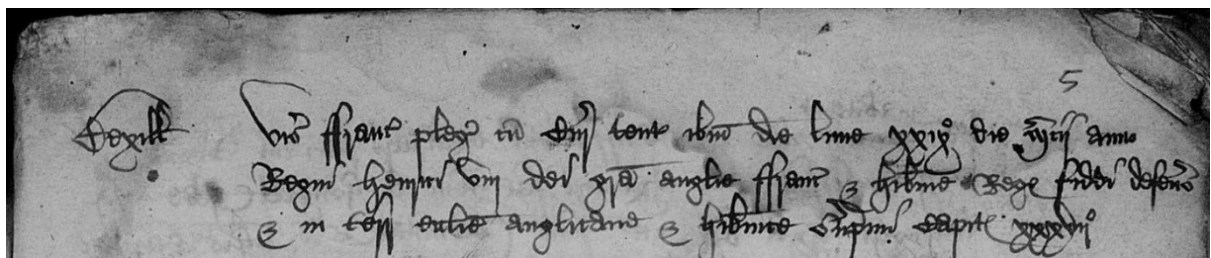 5
Bexill Vis ffranc pleg cu Cur tent ibm die lune xxix die Marcii anno
Regni henrici viii dei gra anglie ffranc & hibnie Reg fidei defens
& in terr ecclie anglicane & hibnice supmi Capit xxxvii